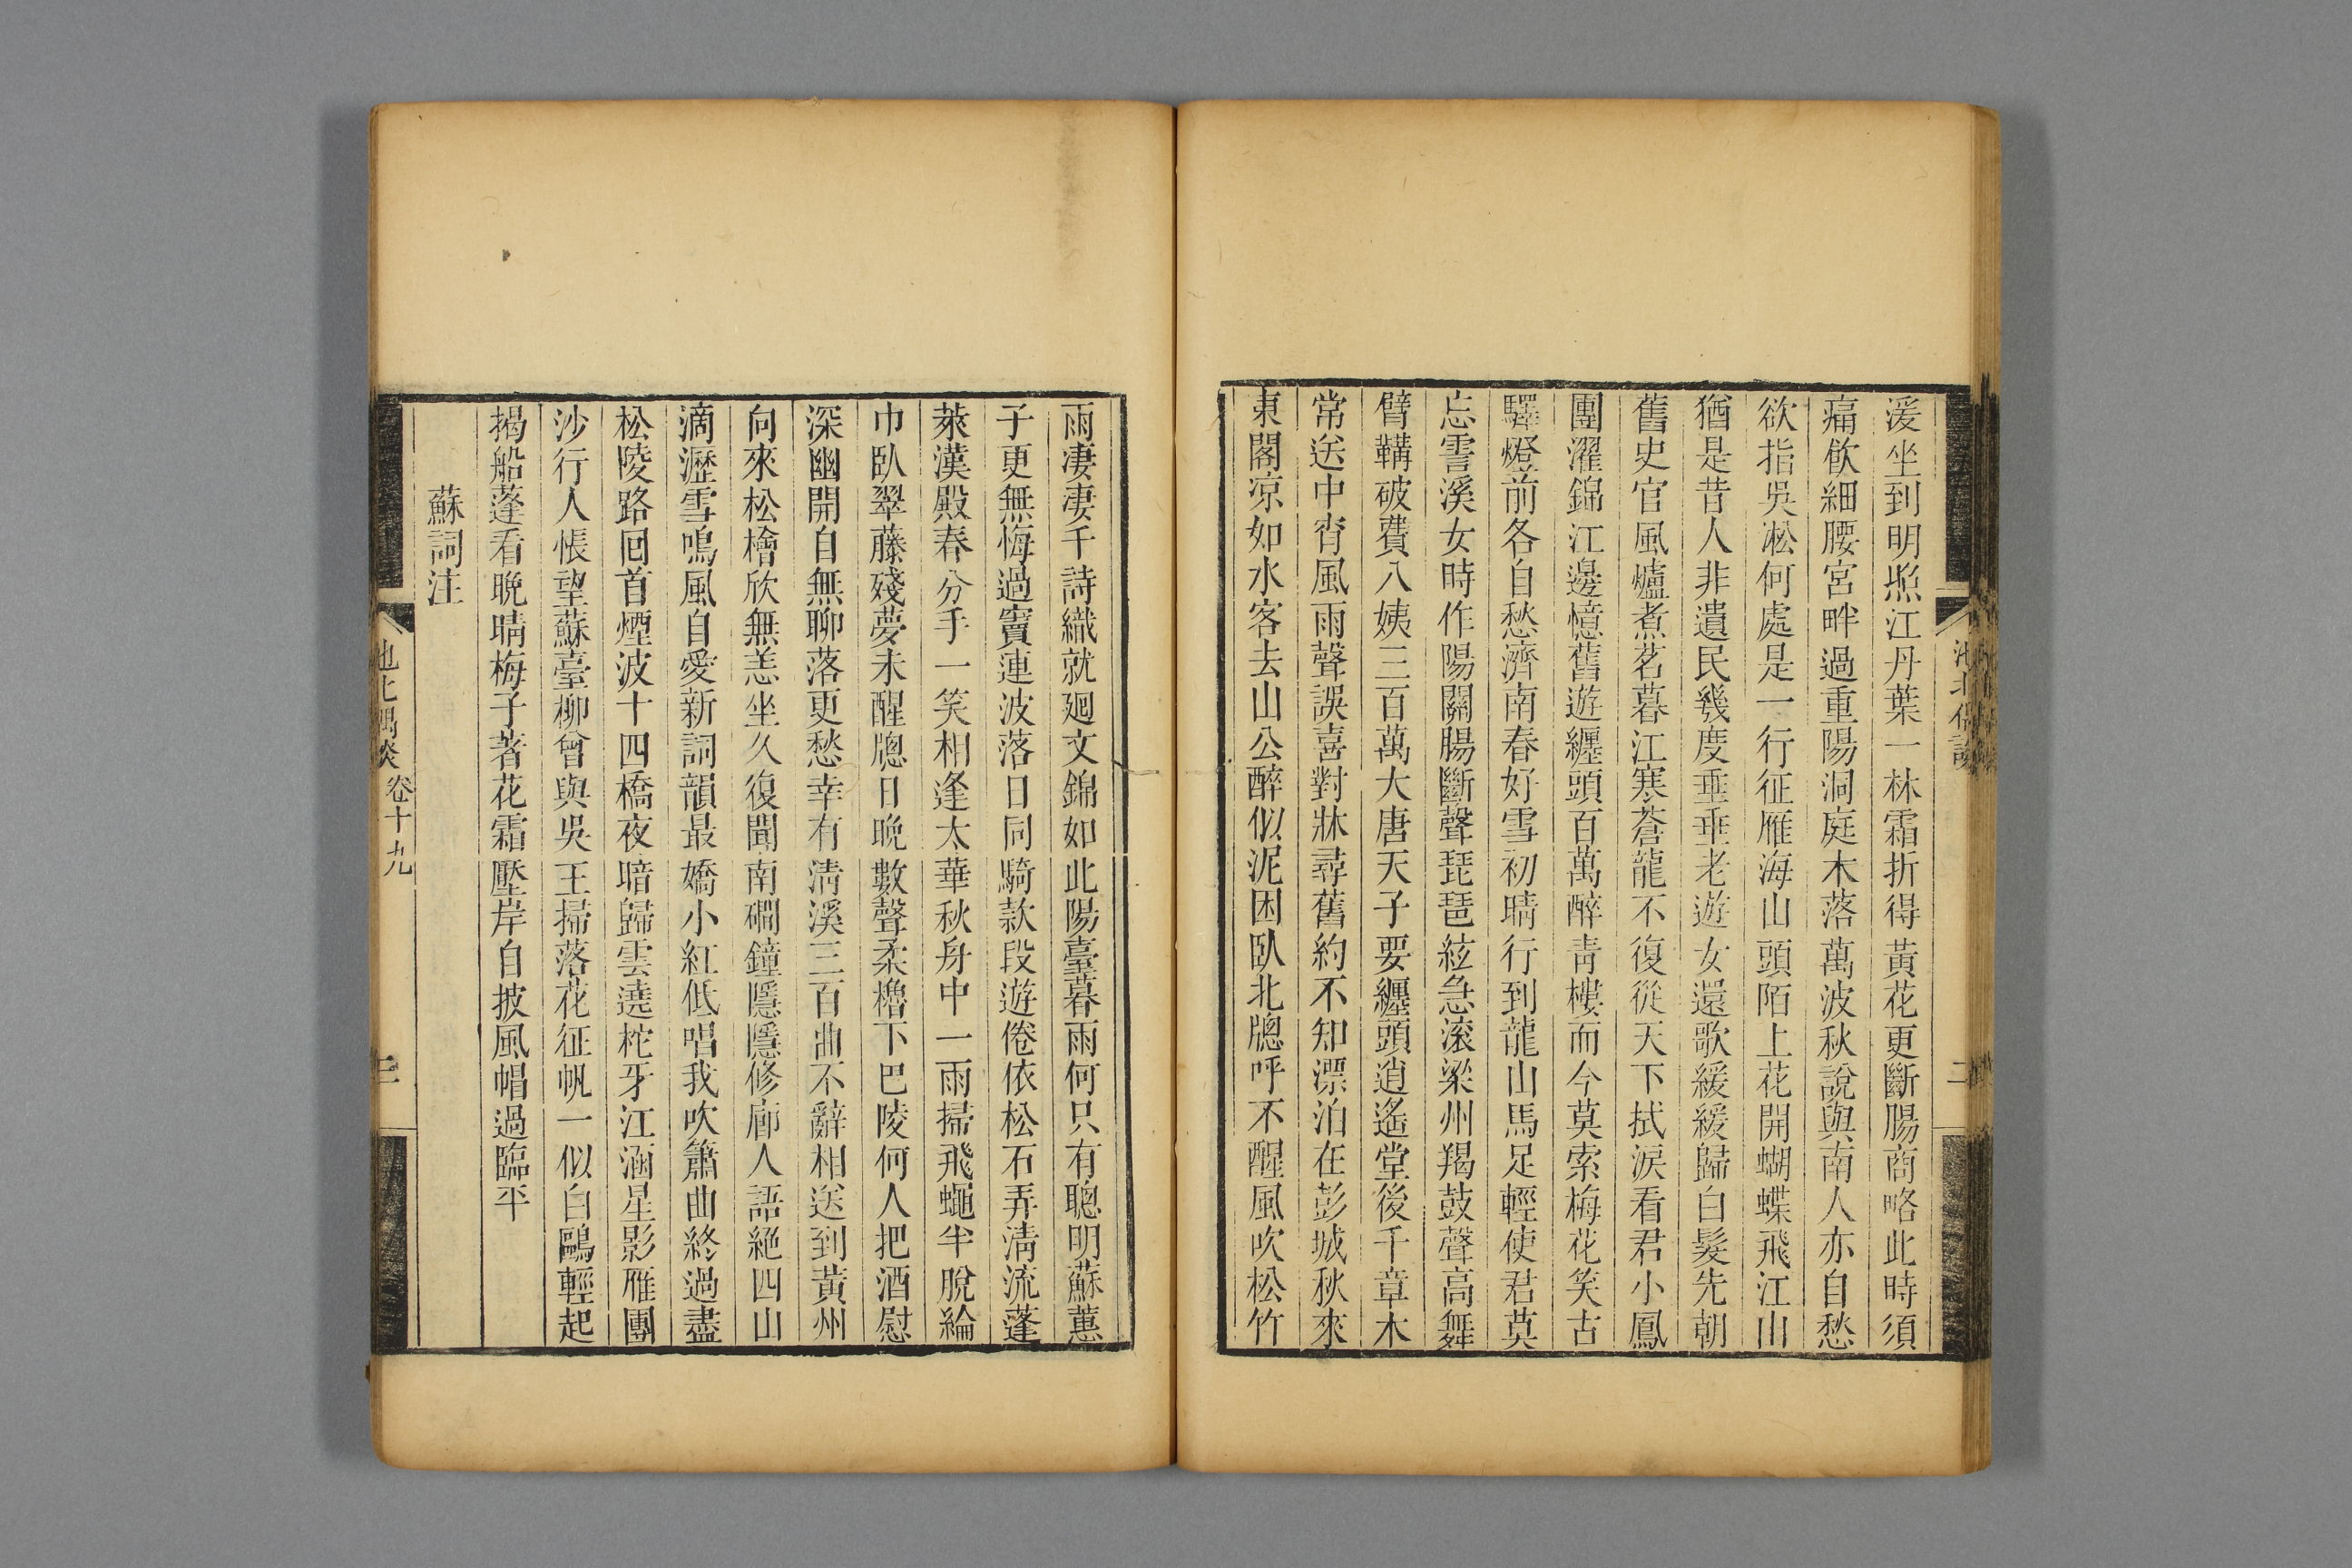 池北偶談
二
湲坐到明㷖江丹葉一林霜折得黃花更斷腸商略此時須
痛飲細腰宮畔過重陽洞庭木落萬波秋說與南人亦自愁
欲指吳淞何處是一行征雁海山頭陌上花開蝴蝶飛江山
猶是昔人非遺民幾度垂垂老遊女還歌緩緩歸白髮先朝
舊史官風爐煮茗暮江寒蒼龍不復從天下拭淚看君小鳳
團濯錦江邊憶舊遊纏頭百萬醉青樓而今莫索梅花笑古
驛燈前各自愁濟南春好雪初晴行到龍山馬足輕使君莫
忘霅溪女時作陽關腸斷聲琵琶絃急滚梁州羯鼓聲高舞
臂韝破費八姨三百萬大唐天子要纏頭逍遙堂後千章木
常送中宵風雨聲誤喜對牀尋舊約不知漂泊在彭城秋來
東閣凉如水客去山公醉似泥困臥北牕呼不醒風吹松竹
雨凄凄千詩織就廻文錦如此陽臺暮雨何只有聰明蘇蕙
子更無悔過竇連波落日同騎款段遊倦依松石弄淸流蓬
萊漢殿春分手一笑相逢太華秋身中一雨掃飛蠅半脫綸
巾臥翠藤殘夢未醒牕日晚數聲柔櫓下巴陵何人把酒慰
深幽開自無聊落更愁幸有淸溪三百曲不辭相送到黃州
向來松檜欣無恙坐久復聞南磵鐘隱隱修廊人語絶四山
滴瀝雪鳴風自愛新詞韻最嬌小紅低唱我吹簫曲終過盡
松陵路回首煙波十四橋夜暗歸雲遶柁牙江涵星影雁團
沙行人悵望蘇臺柳曾與吳王掃落花征帆一似白鷗輕起
揭船蓬看晩晴梅子著花霜壓岸自披風帽過臨平
蘇詞注
池北偶談 卷十九
三